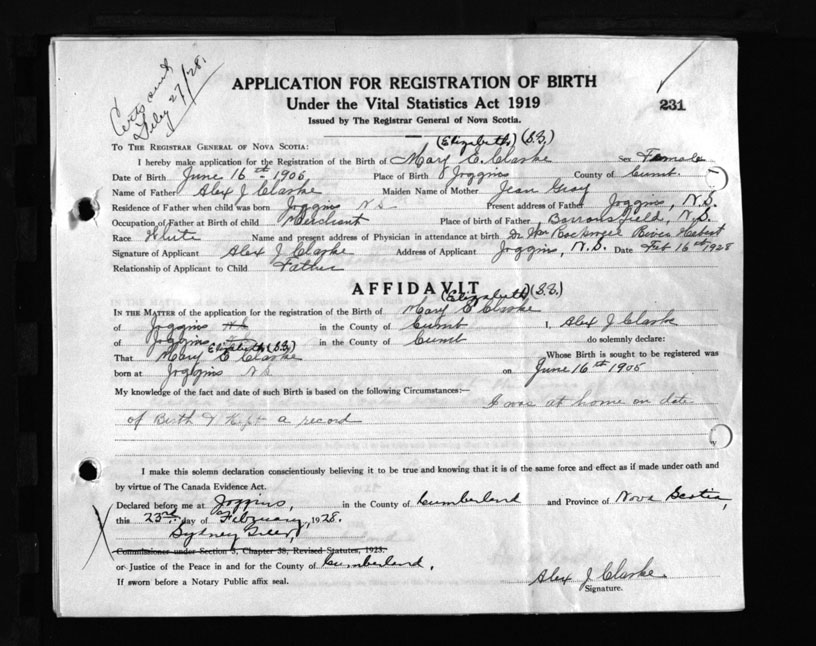 Certs sent
Feby 27/28.
APPLICATION FOR REGISTRATION OF BIRTH
Under the Vital Statistics Act 1919
231
Issued by The Registrar General of Nova Scotia.
(Elizabeth) (S.G.)
TO THE REGISTRAR GENERAL OF NOVA SCOTIA:
I hereby make application for the Registration of the Birth of Mary E. Clarke Sex Female
Date of Birth June 16th 1906 Place of Birth Joggins County of Cumb.
Name of Father Alex J Clarke Maiden Name of Mother Jean Gray
Residence of Father when child was born Joggins N S Present address of Father Joggins, N.S.
Occupation of Father at Birth of child Merchant Place of birth of Father Barronsfield, N.S.
Race White Name and present address of Physician in attendance at birth Dr Wm Rockwell River Hebert
Signature of Applicant Alex J Clarke Address of Applicant Joggins, N.S. Date Feb 16th 1928
Relationship of Applicant to Child Father
AFFIDAVIT
(Elizabeth) (S.G.)
IN THE MATTER of the application for the registration of the Birth of Mary E Clarke
of Joggins in the County of Cumb I, Alex J Clarke
of Joggins in the County of Cumb do solemnly declare:
Elizabeth (S.G.)
That Mary E Clarke Whose Birth is sought to be registered was
born at Joggins N S on June 16th 1906
My knowledge of the fact and date of such Birth is based on the following Circumstances:—
I was at home on date
of Birth & Kept a record
I make this solemn declaration conscientiously believing it to be true and knowing that it is of the same force and effect as if made under oath and
by virtue of The Canada Evidence Act.
Declared before me at Joggins, in the County of Cumberland and Province of Nova Scotia,
this 23rd day of February, 1928.
Sydney Greer,
Commissioner under Section 5, Chapter 38, Revised Statutes, 1923.
or Justice of the Peace in and for the County of Cumberland.
If sworn before a Notary Public affix seal.
Alex J Clarke
Signature.